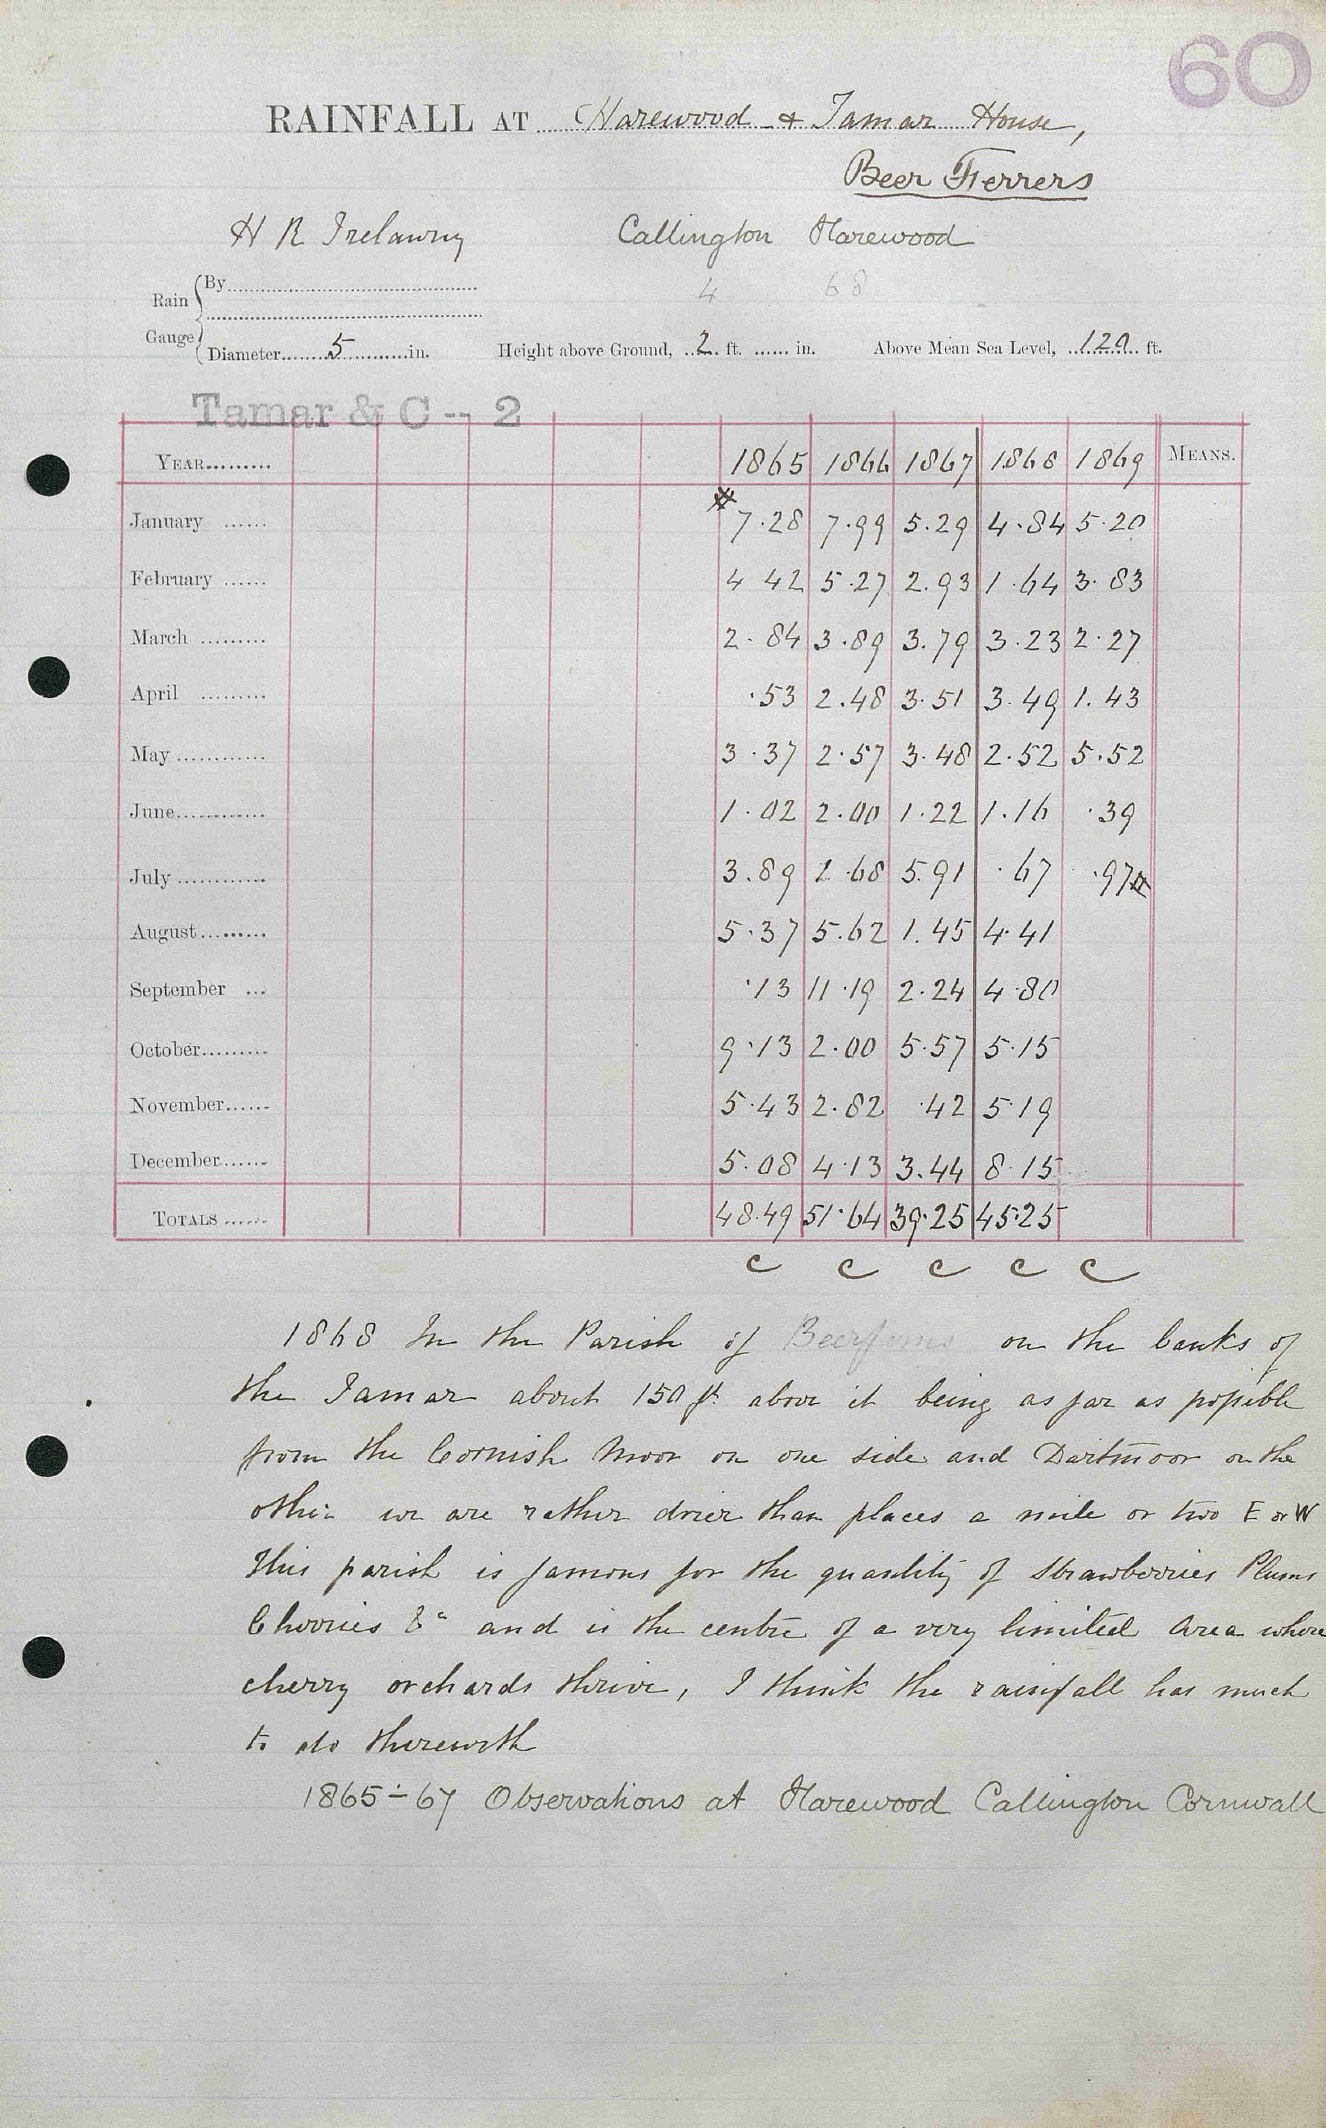 60
RAINFALL AT Harewood & Tamar House,
Beer Ferrers
H R Trelawny Callington Harewood
4 68
Rain Gauge { By
Diameter 5 in. Height above Ground, 2 ft. in. Above Mean Sea Level, 120 ft.
Tamar & C -- 2
YEAR 1865 1866 1867 1868 1869 MEANS.
January 7.28 7.99 5.29 4.84 5.20
February 4 42 5.27 2.93 1.64 3.83
March 2.84 3.89 3.79 3.23 2.27
April .53 2.48 3.51 3.49 1.43
May 3.37 2.57 3.48 2.52 5.52
June 1.02 2.00 1.22 1.16 .39
July 3.89 1.68 5.91 .67 .97
August 5.37 5.62 1.45 4.41
September .13 11.19 2.24 4.80
October 9.13 2.00 5.57 5.15
November 5.43 2.82 .42 5.19
December 5.08 4.13 3.44 8.15
TOTALS 48.49 51.64 39.25 45.25
c c c c c
1868 In the Parish of Beerferris on the banks of
the Tamar about 150 ft above it being as far as possible
from the Cornish Moor on one side and Dartmoor on the
other we are rather drier than places a mile or two E or W
This parish is famous for the quantity of Strawberries Plums
Cherries &c and is the centre of a very limited area where
cherry orchards thrive, I think the rainfall has much
to do therewith
1865-67 Observations at Harewood Callington Cornwall